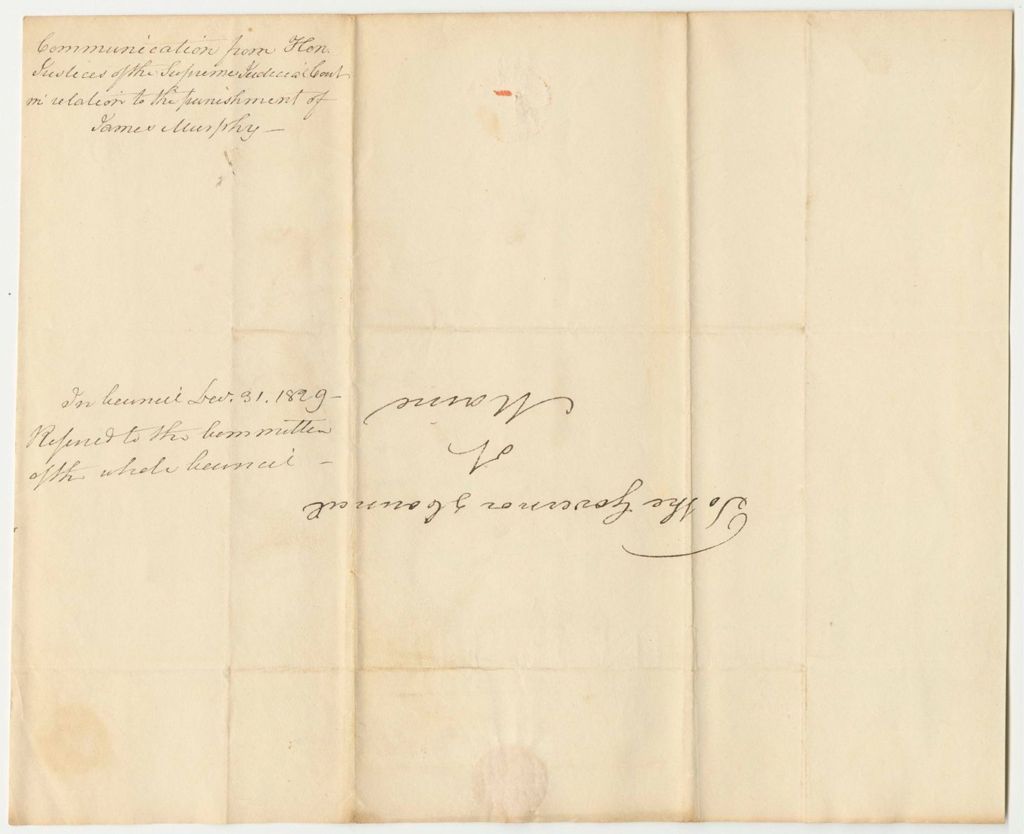 Communication from Hon.
Justices of the Supreme Judicial Court
in relation to the punishment of
James Murphy —
In Council Dec. 31. 1829 —
Referred to the Committee
of the whole Council —
To the Governor & Council
of
Maine